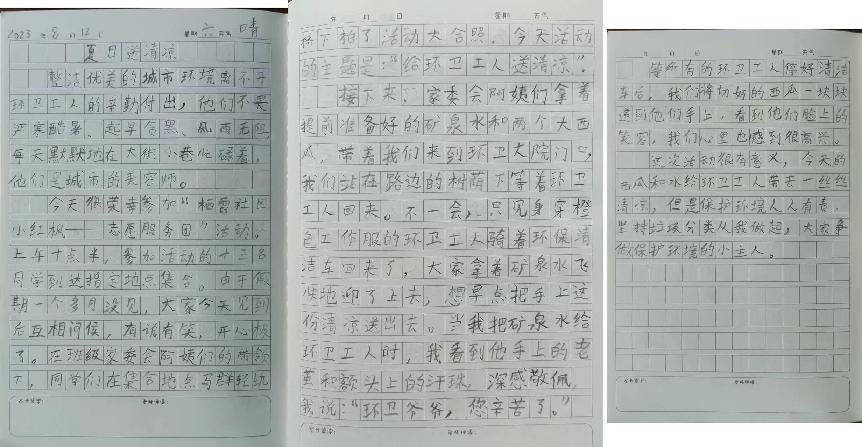 2023 年 8 月 12 日 星期 六 天气 晴
夏日送清凉
整洁优美的城市环境离不开
环卫工人的辛勤付出，他们不畏
严寒酷暑、起早贪黑、风雨无阻，
每天默默地在大街小巷忙碌着，
他们是城市的美容师。
今天很荣幸参加“栖霞社区
小红枫——志愿服务团”活动。
上午十点半，参加活动的十三名
同学到达指定地点集合。由于假
期一个多月没见，大家今天见到
后互相问候，有说有笑，开心极
了。在班级家委会阿姨们的带领
下，同学们在集合地点写群轻纨
年 月 日 星期 天气
接下拍了活动大合照。今天活动
的主题是：“给环卫工人送清凉”。
接下来，家委会阿姨们拿着
提前准备好的矿泉水和两个大西
瓜，带着我们来到环卫大院门口，
我们站在路边的树荫下等着环卫
工人回来。不一会，只见身穿橙
色工作服的环卫工人骑着环保清
洁车回来了，大家拿着矿泉水飞
快地迎了上去，想早点把手上这
份清凉送出去。当我把矿泉水给
环卫工人时，我看到他手上的老
茧和额头上的汗珠，深感敬佩，
我说：“环卫爷爷，您辛苦了。”
年 月 日 星期 天气
等所有的环卫工人停好清洁
车后，我们将切好的西瓜一块块
送到他们手上，看到他们脸上的
笑容，我们心里也感到很高兴。
这次活动很有意义，今天的
西瓜和水给环卫工人带去一丝丝
清凉，但是保护环境人人有责，
坚持垃圾分类从我做起，大家争
做保护环境的小主人。